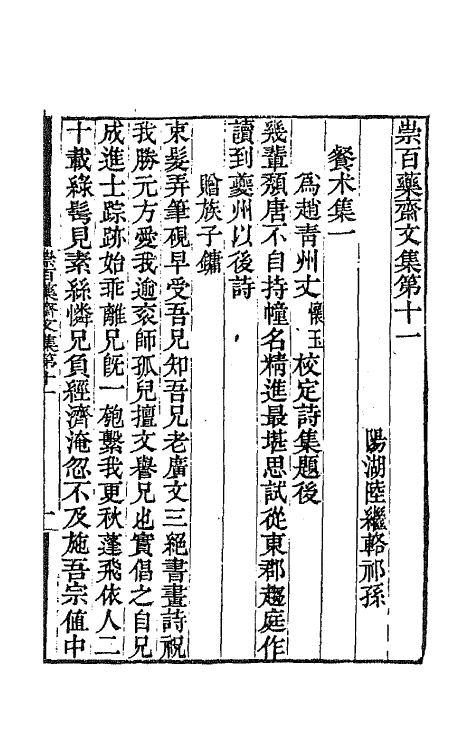 崇百藥齋文集第十一
陽湖陸繼輅祁孫
餐朮集一
為趙青州丈懷玉校定詩集題後
幾輩頹唐不自持幢名精進最堪思試從東郡趨庭作
讀到夔州以後詩
贈族子鏞
束髮弄筆硯早受吾兄知吾兄老廣文三絕書畫詩視
我勝元方愛我逾袤師孤兒擅文譽兄也實倡之自兄
成進士踪跡始乖離兄旣一匏繫我更秋蓬飛依人二
十載綠鬢見素絲憐兄負經濟淹忽不及施吾宗値中
崇百藥齋文集第十一
一